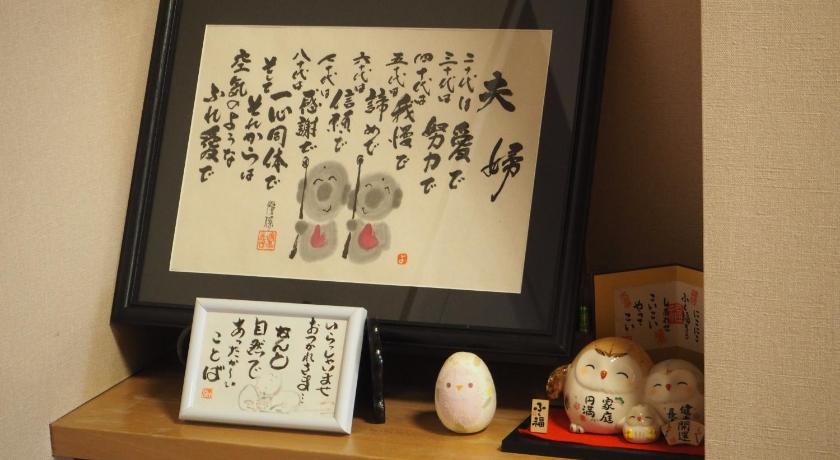 夫婦
二十代は愛で
三十代は努力で
四十代は我慢で
五十代は諦めで
六十代は信頼で
七十代は感謝で
八十代は一心同体で
そしてそれからは
空気のような
ふれ愛で
いらっしゃいませ
おつかれさま…
なんと
自然で
あったか〜い
ことば
にこにこ
しあわせ
こいこい
やって
こい
ふく福
家庭
円満
開運